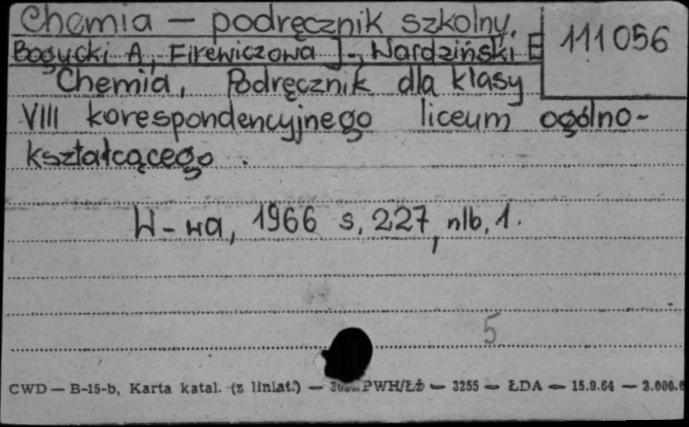 Chemia — podręcznik szkolny.
111056
Bogucki A, Firewiczowa J-, Wardziński E
Chemia, Podręcznik dla klasy
VIII korespondencyjnego liceum ogólno-
kształcącego.
W-wa, 1966 s, 227, nlb, 1.
5
CWD — B-15-b, Karta katal. (z liniat.) — PWH/Łż — 3255 — ŁDA — 15.9.64 —